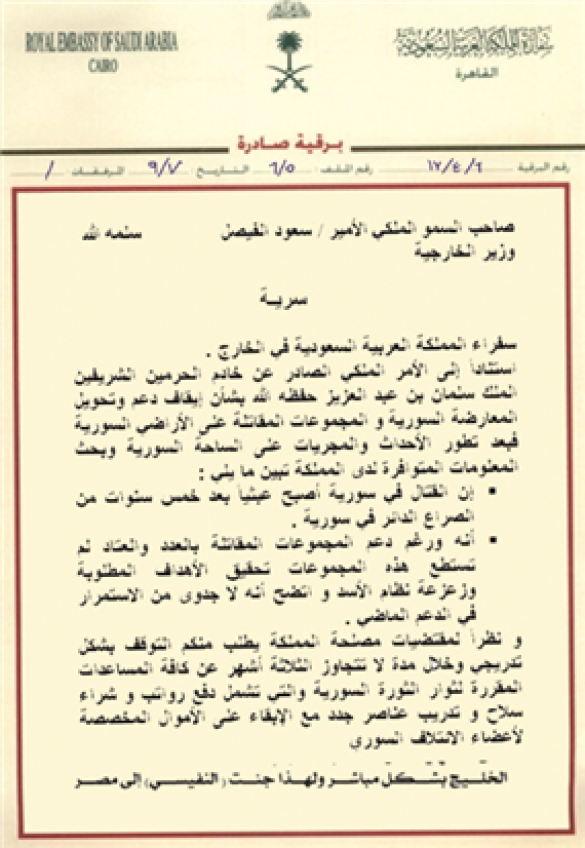 ROYAL EMBASSY OF SAUDI ARABIA
CAIRO
سفارة المملكة العربية السعودية
القاهرة
برقية صادرة
رقم البرقية ١٧/٤/٦ رقم الملف : ٦/٥ التاريخ : ٩/٧ المرفقات : /
صاحب السمو الملكي الأمير / سعود الفيصل سلمه الله
وزير الخارجية
سرية
سفراء المملكة العربية السعودية في الخارج .
استناداً إلى الأمر الملكي الصادر عن خادم الحرمين الشريفين
الملك سلمان بن عبد العزيز حفظه الله بشأن إيقاف دعم وتحويل
المعارضة السورية و المجموعات المقاتلة على الأراضي السورية
فبعد تطور الأحداث والمجريات على الساحة السورية وبحث
المعلومات المتوافرة لدى المملكة تبين ما يلي :
• إن القتال في سورية أصبح عبثياً بعد خمس سنوات من
الصراع الدائر في سورية .
• أنه ورغم دعم المجموعات المقاتلة بالعدد والعتاد لم
تستطع هذه المجموعات تحقيق الأهداف المطلوبة
وزعزعة نظام الأسد و اتضح أنه لا جدوى من الاستمرار
في الدعم الماضي .
و نظراً لمقتضيات مصلحة المملكة يطلب منكم التوقف بشكل
تدريجي وخلال مدة لا تتجاوز الثلاثة أشهر عن كافة المساعدات
المقررة لثوار الثورة السورية والتي تشمل دفع رواتب و شراء
سلاح و تدريب عناصر جدد مع الإبقاء على الأموال المخصصة
لأعضاء الائتلاف السوري
الخليج بشكل مباشر ولهذا جنت (النفيسي) إلى مصر